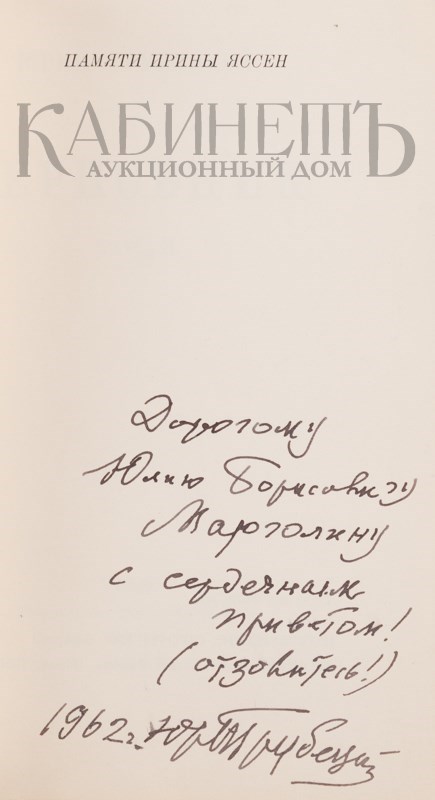 ПАМЯТИ ИРИНЫ ЯССЕН
КАБИНЕТЪ
АУКЦИОННЫЙ ДОМ
Дорогому
Юлию Борисовичу
Марголину
с сердечным
приветом!
(отзовитесь!)
1962 г. Юр Трубецкой